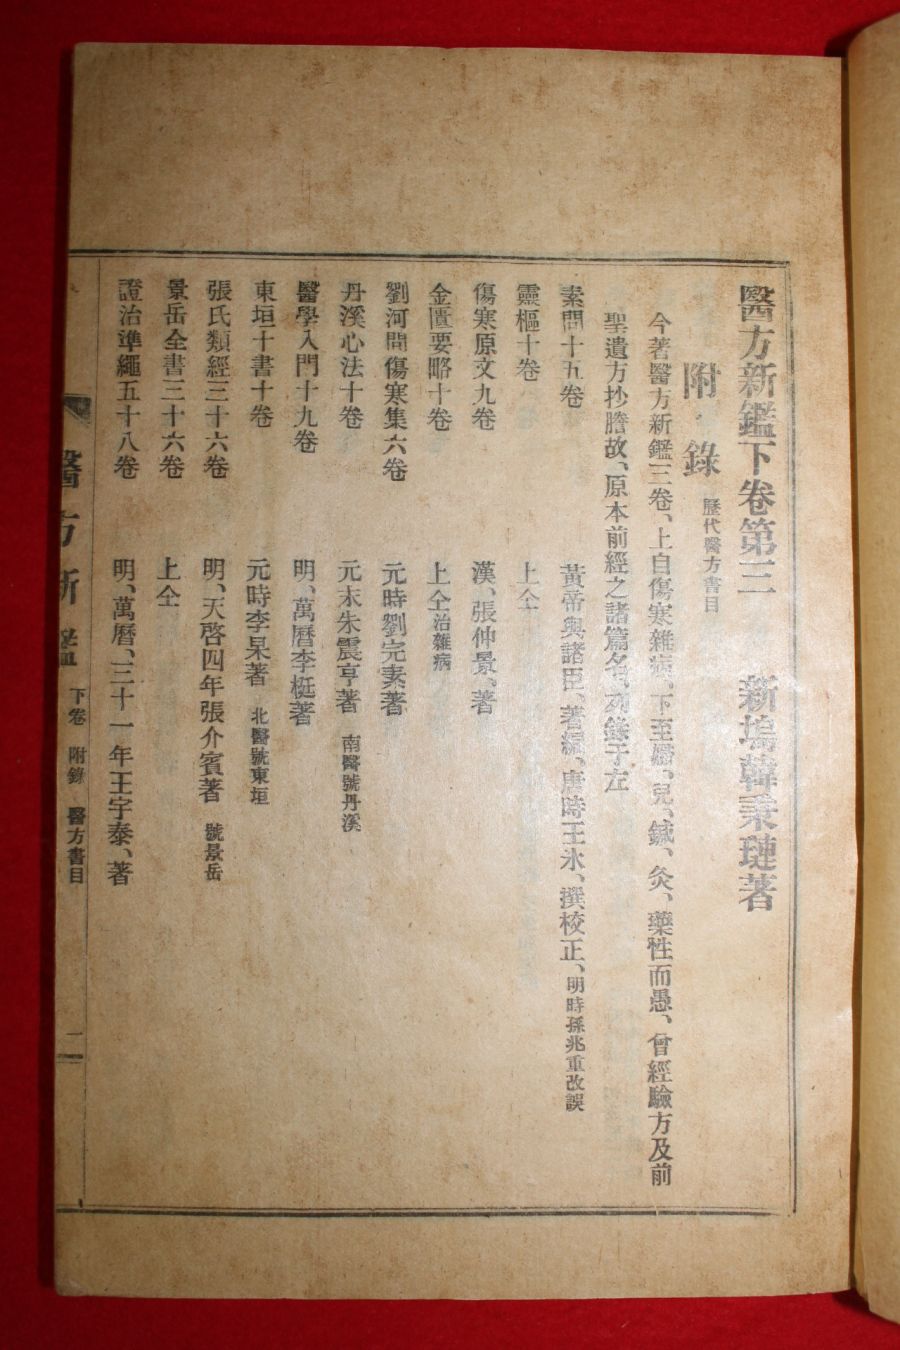 醫方新鑑下卷第三　新塢韓秉璉著
附錄 歷代醫方書目
今著醫方新鑑三卷、上自傷寒雜病、下至婦、兒、鍼、灸、藥性而愚、曾經驗方及前
聖遺方抄謄故、原本前經之諸篇名、列錄于左
素問十五卷　黃帝與諸臣、著編、唐時王氷、撰校正、明時孫兆重改誤
靈樞十卷　上仝
傷寒原文九卷　漢、張仲景、著
金匱要略十卷　上仝治雜病
劉河間傷寒集六卷　元時劉完素著
丹溪心法十卷　元末朱震亨著 南醫號丹溪
醫學入門十九卷　明、萬曆李梴著
東垣十書十卷　元時李杲著 北醫號東垣
張氏類經三十六卷　明、天啓四年張介賓著 號景岳
景岳全書三十六卷　上仝
證治準繩五十八卷　明、萬曆、三十一年王宇泰、著
醫方新鑑 下卷 附錄 醫方書目 一